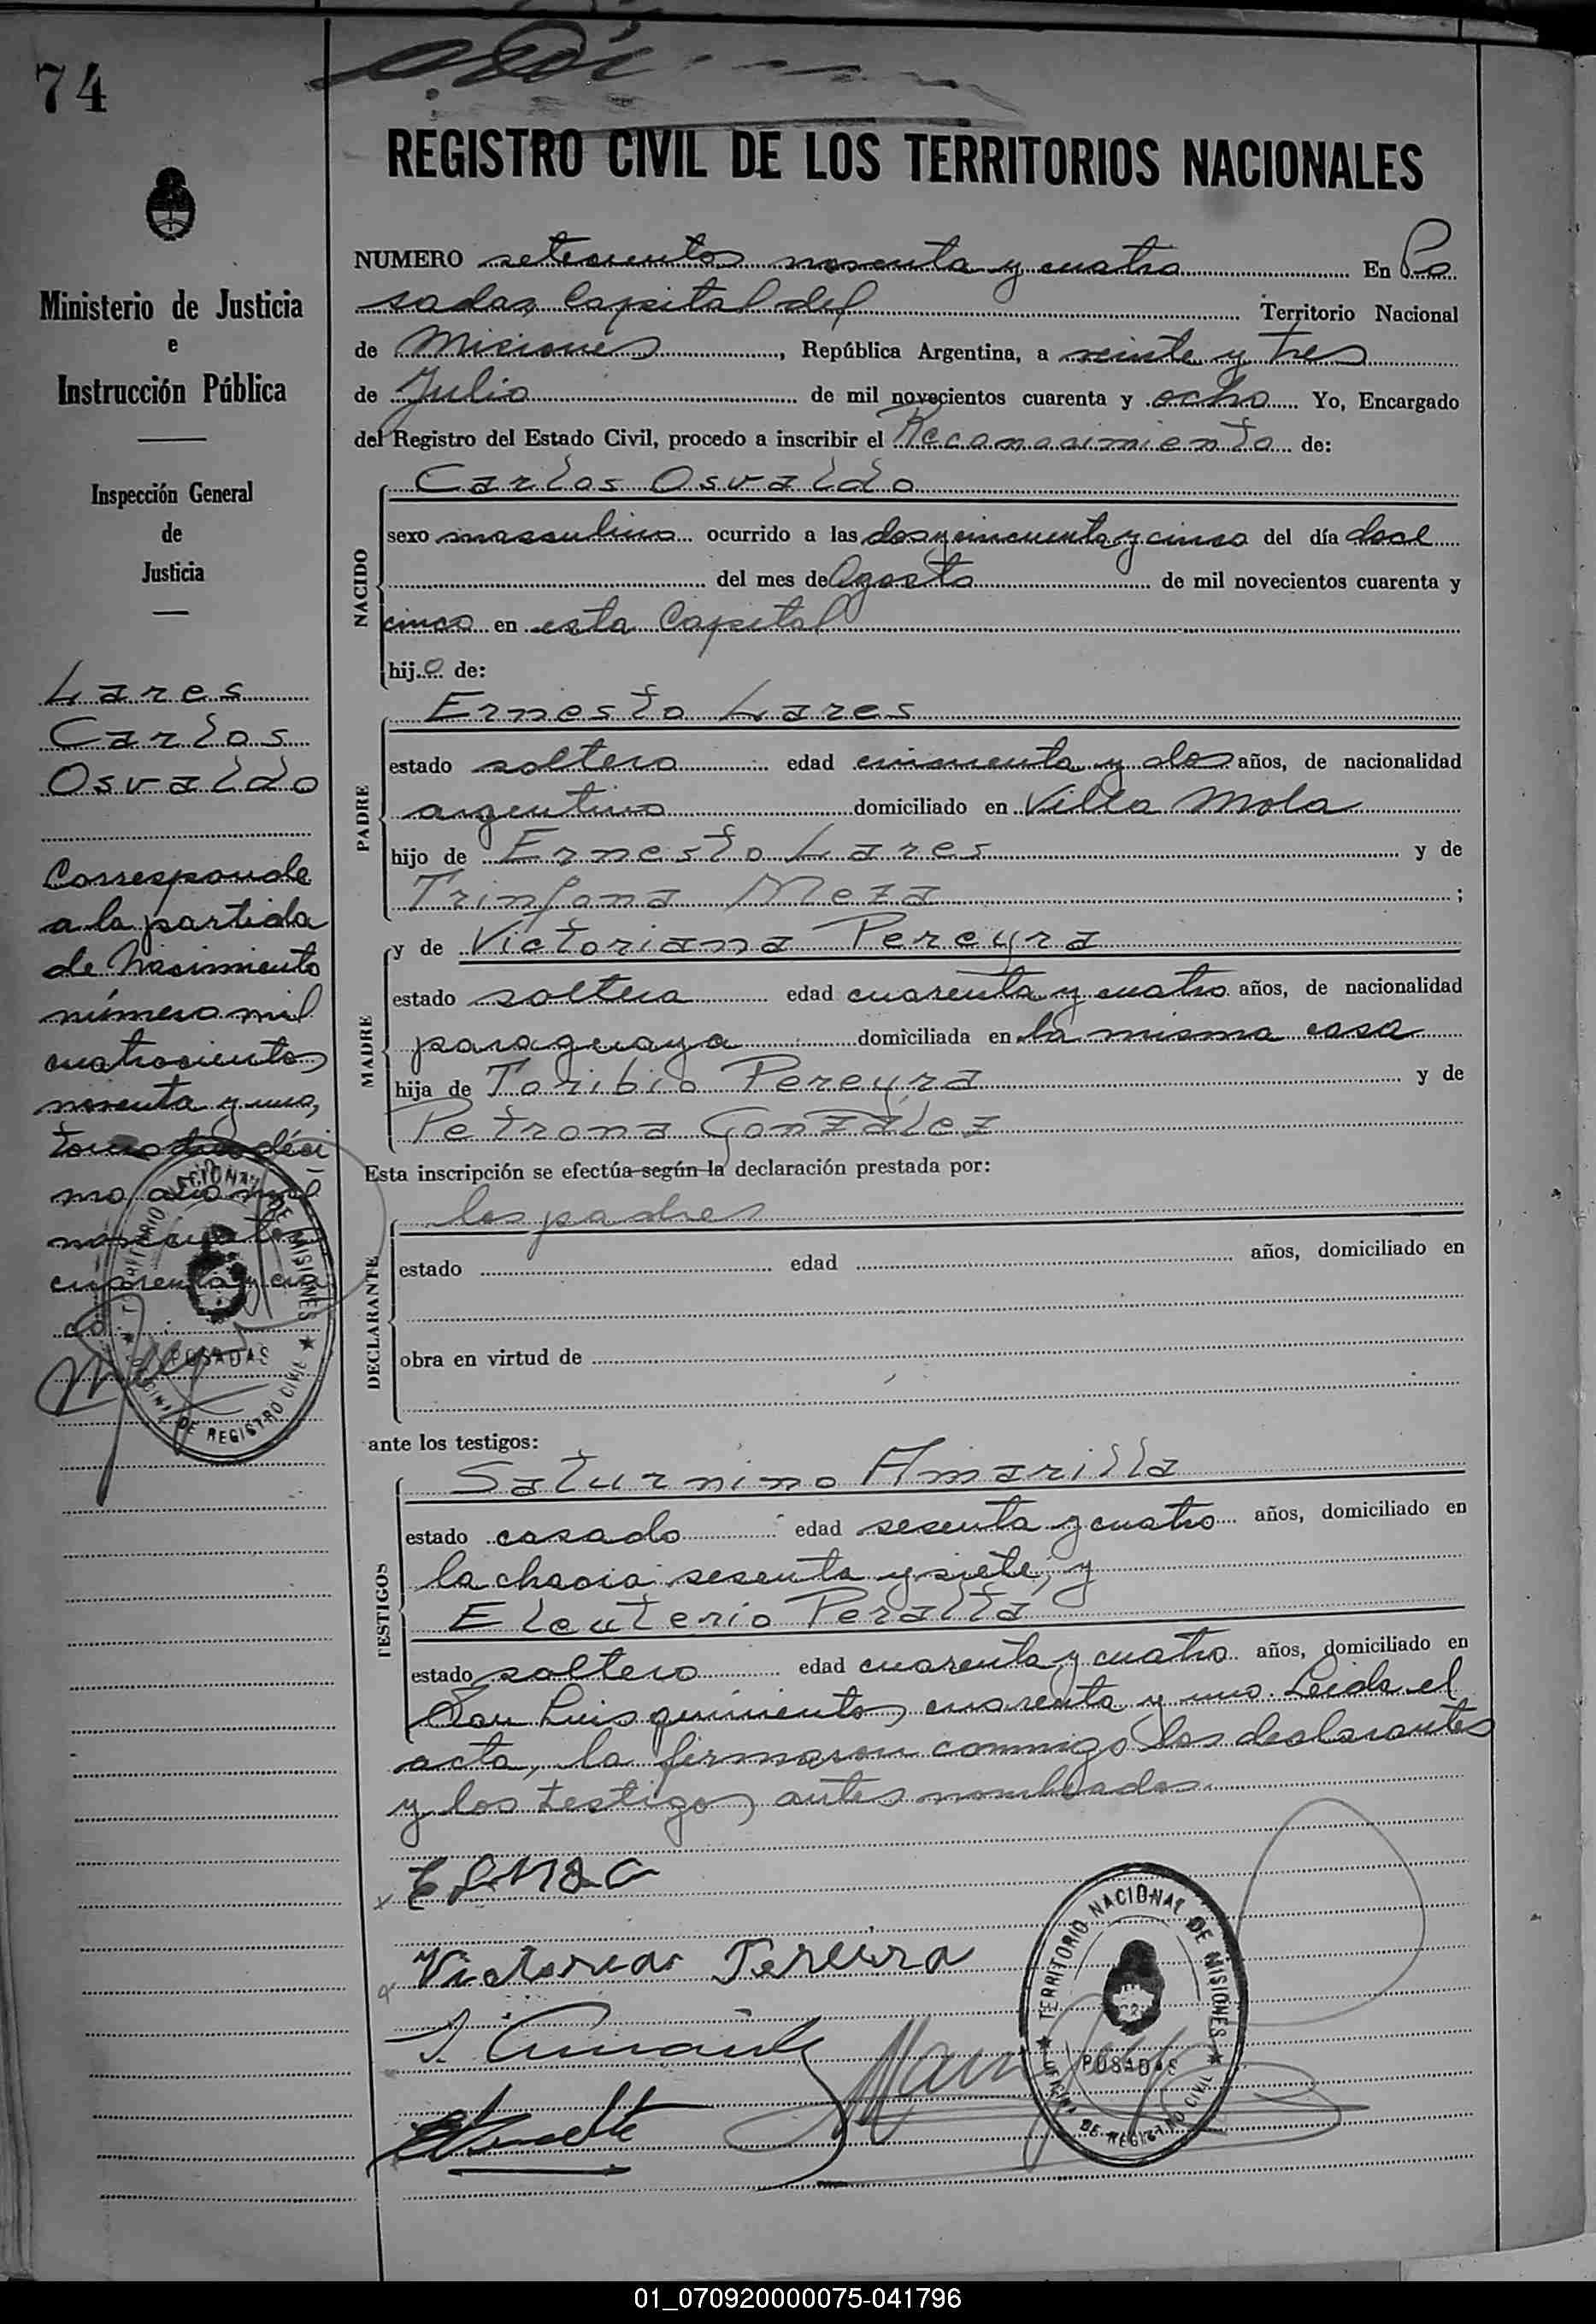 74
REGISTRO CIVIL DE LOS TERRITORIOS NACIONALES
Ministerio de Justicia
e
Instrucción Pública
Inspección General
de
Justicia
Lares
Carlos
Osvaldo
Corresponde
a la partida
de Nacimiento
número mil
cuatrocientos
noventa y uno,
tomo déci
mo año mil
novecientos
cuarenta y cin
co
TERRITORIO NACIONAL DE MISIONES
POSADAS
OFICINA DE REGISTRO CIVIL
NUMERO setecientos noventa y cuatro En Po
sadas, Capital del Territorio Nacional
de Misiones, República Argentina, a veinte y tres
de Julio de mil novecientos cuarenta y ocho Yo, Encargado
del Registro del Estado Civil, procedo a inscribir el Reconocimiento de:
NACIDO
Carlos Osvaldo
sexo masculino ocurrido a las dos y cincuenta y cinco del día doce
del mes de Agosto de mil novecientos cuarenta y
cinco en esta Capital
hijo de:
PADRE
Ernesto Lares
estado soltero edad cincuenta y dos años, de nacionalidad
argentino domiciliado en Villa Mola
hijo de Ernesto Lares y de
Trinfona Meza ;
MADRE
y de Victoriana Pereyra
estado soltera edad cuarenta y cuatro años, de nacionalidad
paraguaya domiciliada en la misma casa
hija de Toribio Pereyra y de
Petrona González
Esta inscripción se efectúa según la declaración prestada por:
DECLARANTE
los padres
estado edad años, domiciliado en
obra en virtud de
ante los testigos:
TESTIGOS
Saturnino Amarilla
estado casado edad sesenta y cuatro años, domiciliado en
la chacra sesenta y siete, y
Eleuterio Peralta
estado soltero edad cuarenta y cuatro años, domiciliado en
San Luis quinientos cuarenta y uno. Leida el
acta, la firmaron conmigo los declarantes
y los testigos antes nombrados.
Pereira
TERRITORIO NACIONAL DE MISIONES
POSADAS
OFICINA DE REGISTRO CIVIL
01_070920000075-041796